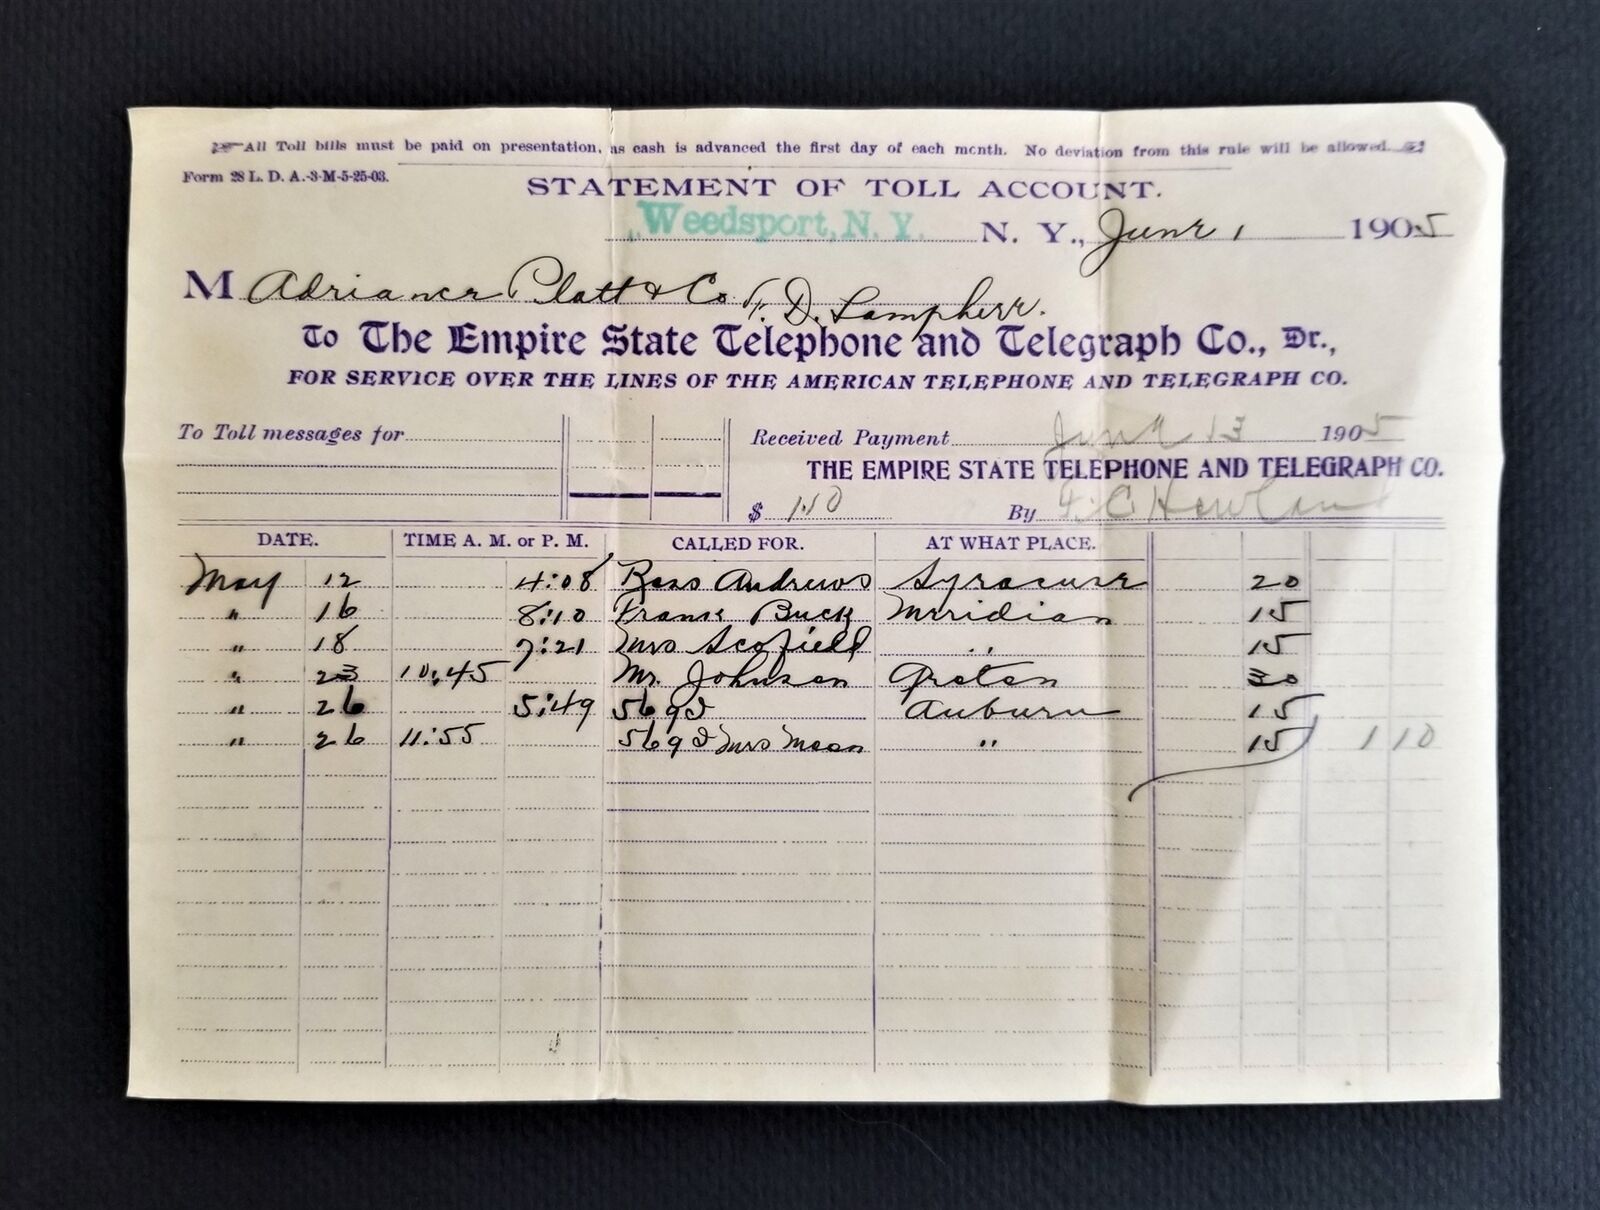 All Toll bills must be paid on presentation, as cash is advanced the first day of each month. No deviation from this rule will be allowed.
Form 28 L. D. A.-3-M-5-25-03.
STATEMENT OF TOLL ACCOUNT.
Weedsport, N. Y. N. Y., June 1 1905
M Adriance Platt & Co F. D. Lampherr.
To The Empire State Telephone and Telegraph Co., Dr.,
FOR SERVICE OVER THE LINES OF THE AMERICAN TELEPHONE AND TELEGRAPH CO.
To Toll messages for
Received Payment June 13 1905
THE EMPIRE STATE TELEPHONE AND TELEGRAPH CO.
$ 1.10 By
DATE. TIME A. M. or P. M. CALLED FOR. AT WHAT PLACE.
May 12 4:08 Ross Andrews Syracuse 20
" 16 8:10 Frank Buck Meridian 15
" 18 7:21 Mrs Scofield " 15
" 23 10:45 Mr. Johnson Groton 30
" 26 5:49 569J Auburn 15
" 26 11:55 569J Mrs Moon " 15 1 10